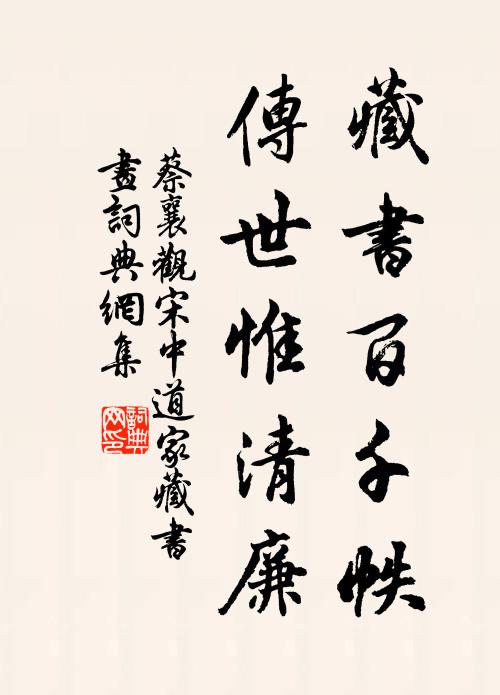 藏書百千帙
傳世惟清廉
蔡襄觀宋中道家藏書
畫詞典網集
詞典網印